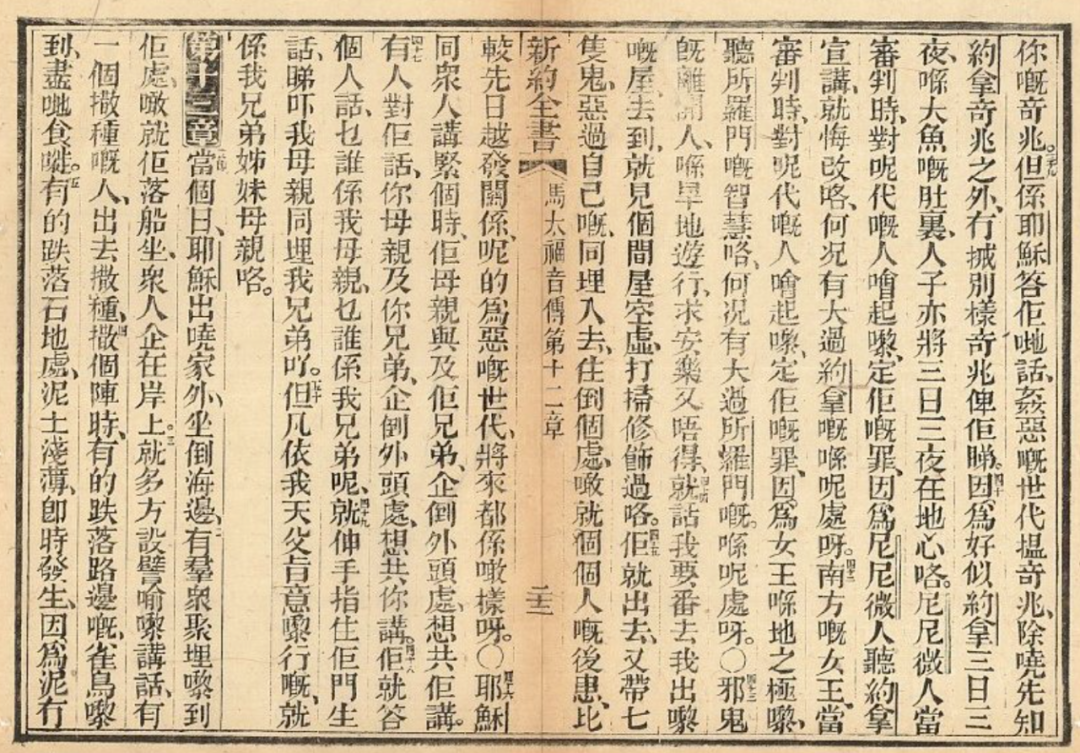 你嘅奇兆。三十九但係耶穌答佢哋話、姦惡嘅世代搵奇兆、除嘵先知
約拿奇兆之外、冇搣別樣奇兆俾佢睇。四十因爲好似約拿三日三
夜、喺大魚嘅肚裏、人子亦將三日三夜在地心咯。尼尼微人當
審判時、對呢代嘅人噲起嚟、定佢嘅罪、因爲尼尼微人聽約拿
宣講、就悔改咯、何况有大過約拿嘅喺呢處呀。四二南方嘅女王、當
審判時、對呢代嘅人噲起嚟、定佢嘅罪、因爲女王喺地之極嚟、
聽所羅門嘅智慧咯、何况有大過所羅門嘅。喺呢處呀。〇四三邪鬼
旣離開人、喺旱地遊行、求安樂又唔得、四四就話我要番去我出嚟
嘅屋、去到、就見個間屋空虛、打掃修飾過咯。四五佢就出去、又帶七
隻鬼、惡過自己嘅、同埋入去、住倒個處、噉就個個人嘅後患、比
新約全書 馬太福音傳第十二章
較先日越發關係、呢的爲惡嘅世代、將來都係噉樣呀。〇四六耶穌
同衆人講緊個時、佢母親與及佢兄弟、企倒外頭處、想共佢講。
四七有人對佢話、你母親及你兄弟、企倒外頭處、想共你講。四十八佢就答
個人話、乜誰係我母親、乜誰係我兄弟呢、四十九就伸手指住佢門生
話、睇吓我母親同埋我兄弟吖。五十但凡依我天父旨意嚟行嘅、就
係我兄弟姊妹母親咯。
第十三章 當個日、耶穌出嘵家外、坐倒海邊、二有羣衆聚埋嚟到
佢處、噉就佢落船坐、衆人企在岸上。三就多方設譬喻嚟講話、有
一個撒種嘅人、出去撒種、四撒個陣時、有的跌落路邊嘅、雀鳥嚟
到、盡哋食嘥。五有的跌落石地處、泥土淺薄、卽時發生、因爲泥冇